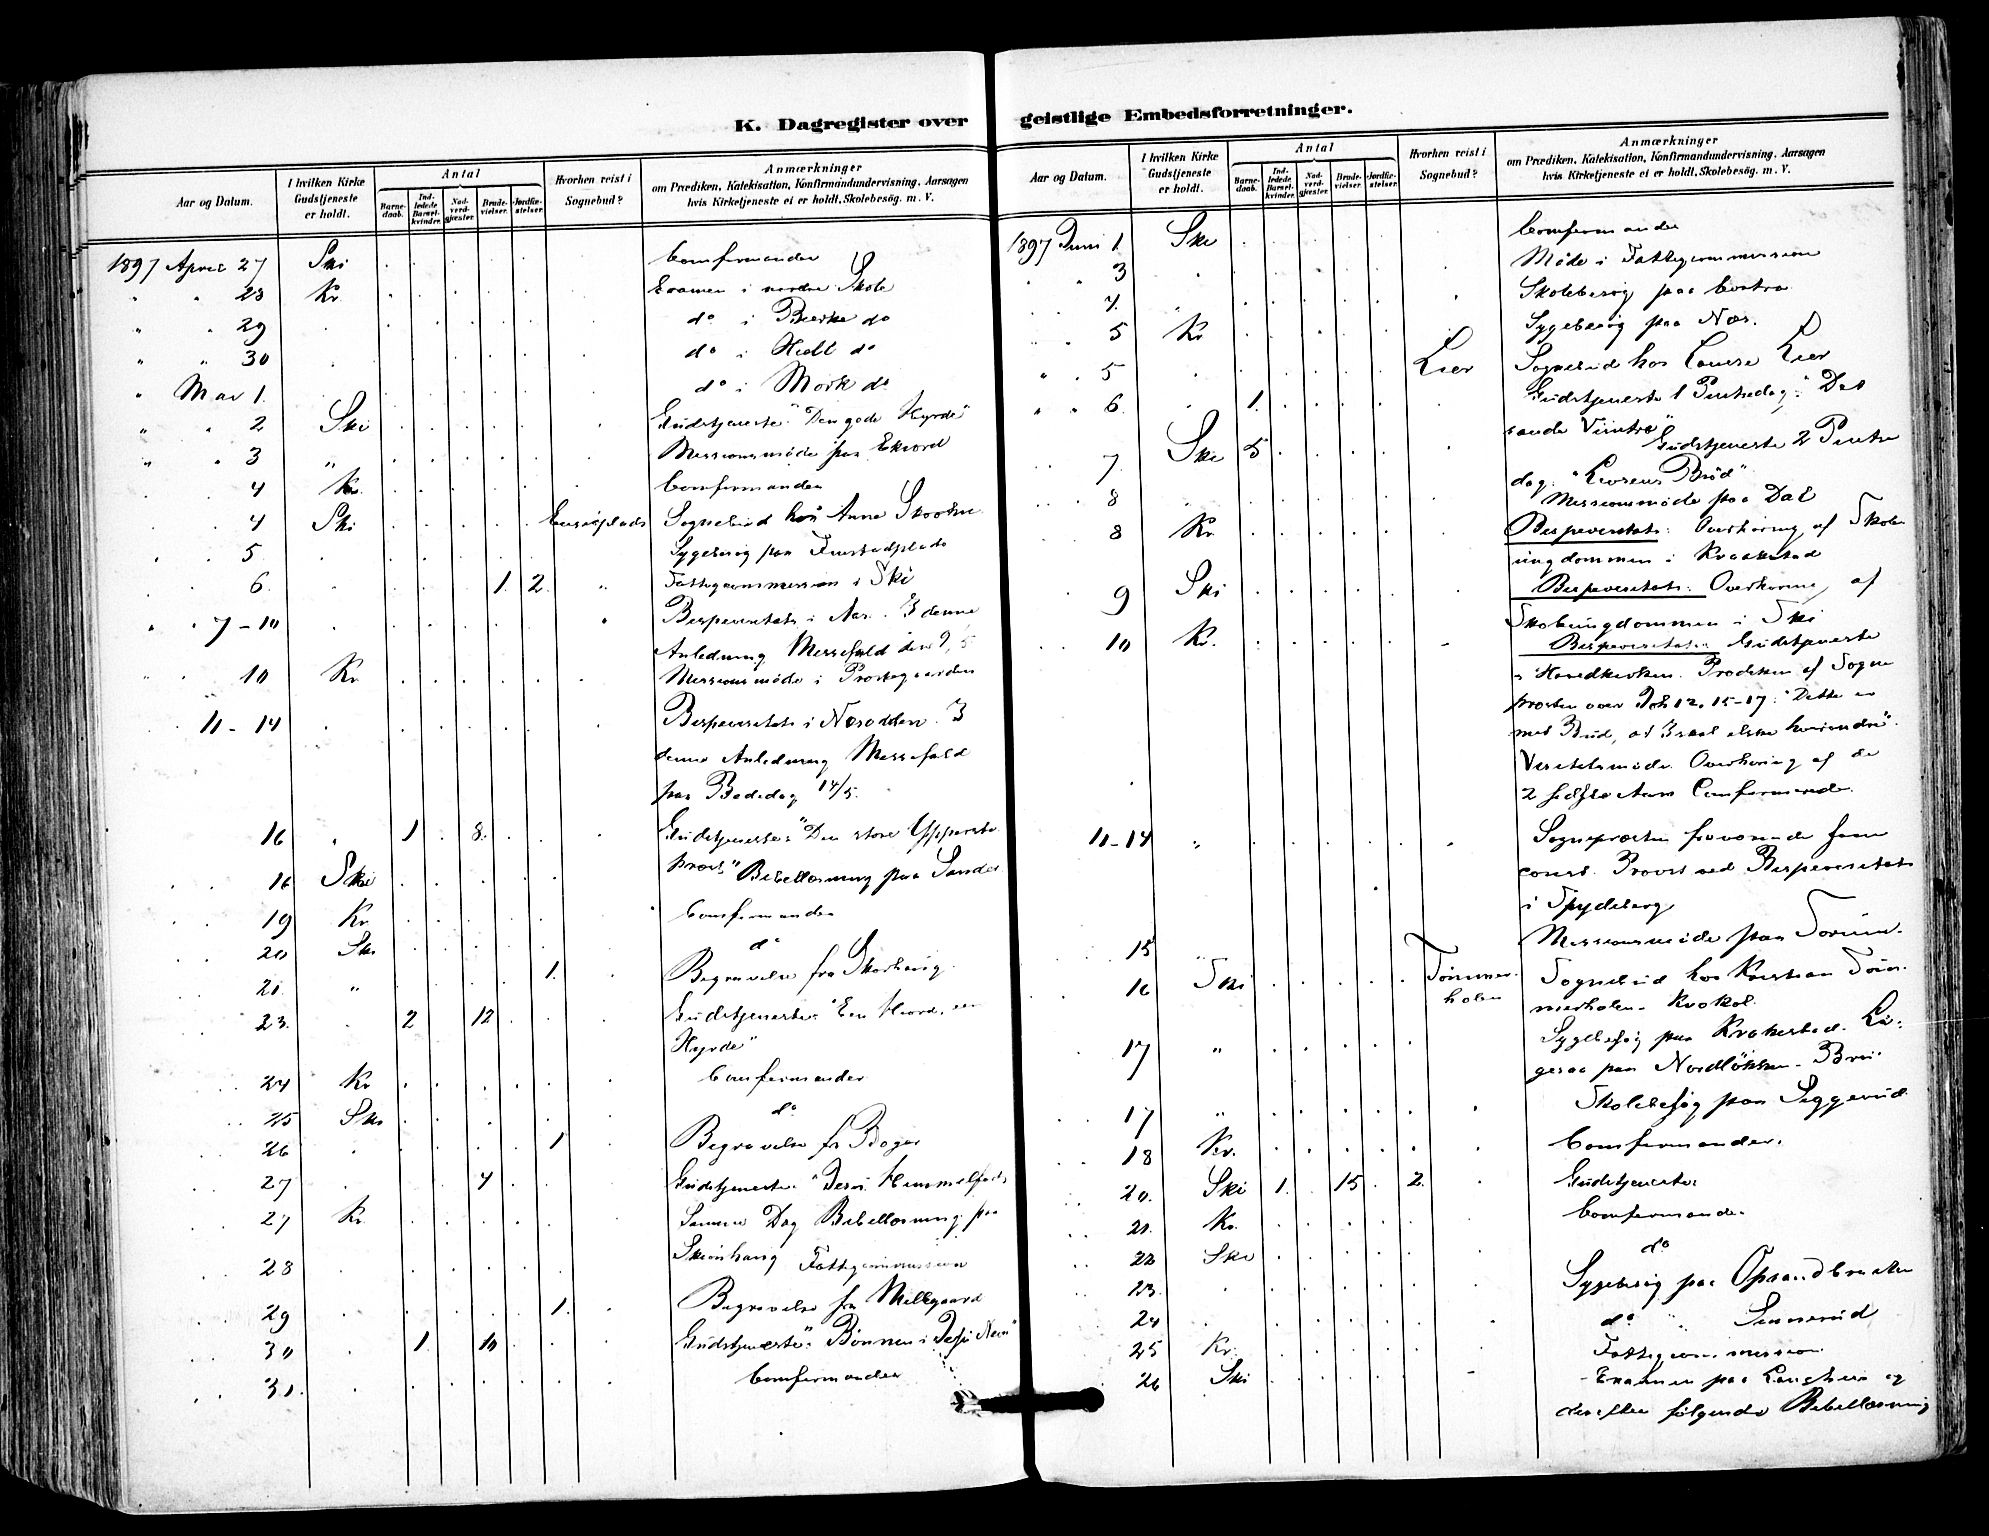 K. Dagregister over geistlige Embedsforretninger.
Aar og Datum.
I hvilken Kirke Gudstjeneste er holdt.
Antal
Barne-daab.
Ind-ledede Barsel-kvinder.
Nad-verd-gjester.
Brude-vielser.
Jordfæ-stelser.
Hvorhen reist i Sognebud?
Anmærkninger
om Prædiken, Katekisation, Konfirmandundervisning, Aarsagen hvis Kirketjeneste ei er holdt, Skolebesög. m. V.
1897 April 27 Ski Comfirmander
" " 28 Kr Examen i nordre Skole
" " 29 do i do
" " 30 do i do
" Mai 1. do i Mork do
" " 2 Ski Gudstjeneste "Den gode Hyrde"
" " 3 " Missionsmøde paa
4 Kr. Comfirmander
4 Ski Sognebud hos Anne
5 Sygebesøg paa
6. 1. 2. Fattigcommission i Ski
" 7-10 Bispevisitats i Aas. I denne
Anledning Messefald den 9/5
10 Kr. Missionsmøde i Prostegaarden
11-14 Bispevisitats i Nesodden. I
denne Anledning Messefald
paa Bededag 14/5.
16 " 1 8. Gudstjeneste: "Den store Ypperste
Præst"
16 Ski Bibellæsning paa Sander
19 Kr Comfirmander
20 Ski do
21. " 1. Begravelse fra
23. 2 12 Gudstjeneste: "Een Hjord, een
Hyrde"
24 Kr Comfirmander
25 Ski do
26 1 Begravelse fra
27 4 Gudstjeneste. "Jesu Himmelfart
27 Kr. Samme Dag Bibellæsning paa
28 Fattigcommission
29 1. Begravelse fra
30 1. 10 Gudstjeneste "Bønnen i Jesu Navn"
31. Comfirmander
Aar og Datum.
I hvilken Kirke Gudstjeneste er holdt.
Antal
Barne-daab.
Ind-ledede Barsel-kvinder.
Nad-verd-gjester.
Brude-vielser.
Jordfæ-stelser.
Hvorhen reist i Sognebud?
Anmærkninger
om Prædiken, Katekisation, Konfirmandundervisning, Aarsagen hvis Kirketjeneste ei er holdt, Skolebesög. m. V.
1897 Juni 1. Ski Comfirmander
" " 3 Møde i Fattigcommission
4. " Skolebesøg paa
5 Kr Sygebesøg paa Næs.
" " 5 " Lier Sognebud hos Lier
" " 6. 1. Gudstjeneste 1 Pintsedag: "Det
sande Vintræ"
7 Ski 5 Gudstjeneste 2 Pintse
dag: "Livsens Brød"
8 Missionsmøde paa Dal
8 Kr. Bispevisitats: Overhøring af Skole
ungdommen i Kraakstad
9 Ski Bispevisitats: Overhøring af
Skoleungdommen i Ski
10 Kr. Bispevisitats: Gudstjeneste
i Hovedkirken. Prædiken af Sogne
præsten over Joh 12, 15-17: "Dette er
mit Bud, at I skal elske hverandre".
Visitatsmøde. Overhøring af de
2 sidste Aars Comfirmander.
11-14 " Sognepræsten fraværende som
const. Provst ved Bispevisitats
i Spydeberg
15 Missionsmøde paa
16 Ski Tømmer-holen Sognebud hos Kristian Tøm-
merholen.
17 " Sygebesøg paa Krakestad.
paa Nordløkken.
17 " Skolebesøg paa Siggerud.
18 Kr. Comfirmander.
20. Ski 1. 15 2. Gudstjeneste
21. Kr. Comfirmander.
22 Ski do
23. Sygebesøg paa
24 do
25 Kr. Fattigcommission
26 Ski Examen paa og
derefter følgende Bibellæsning